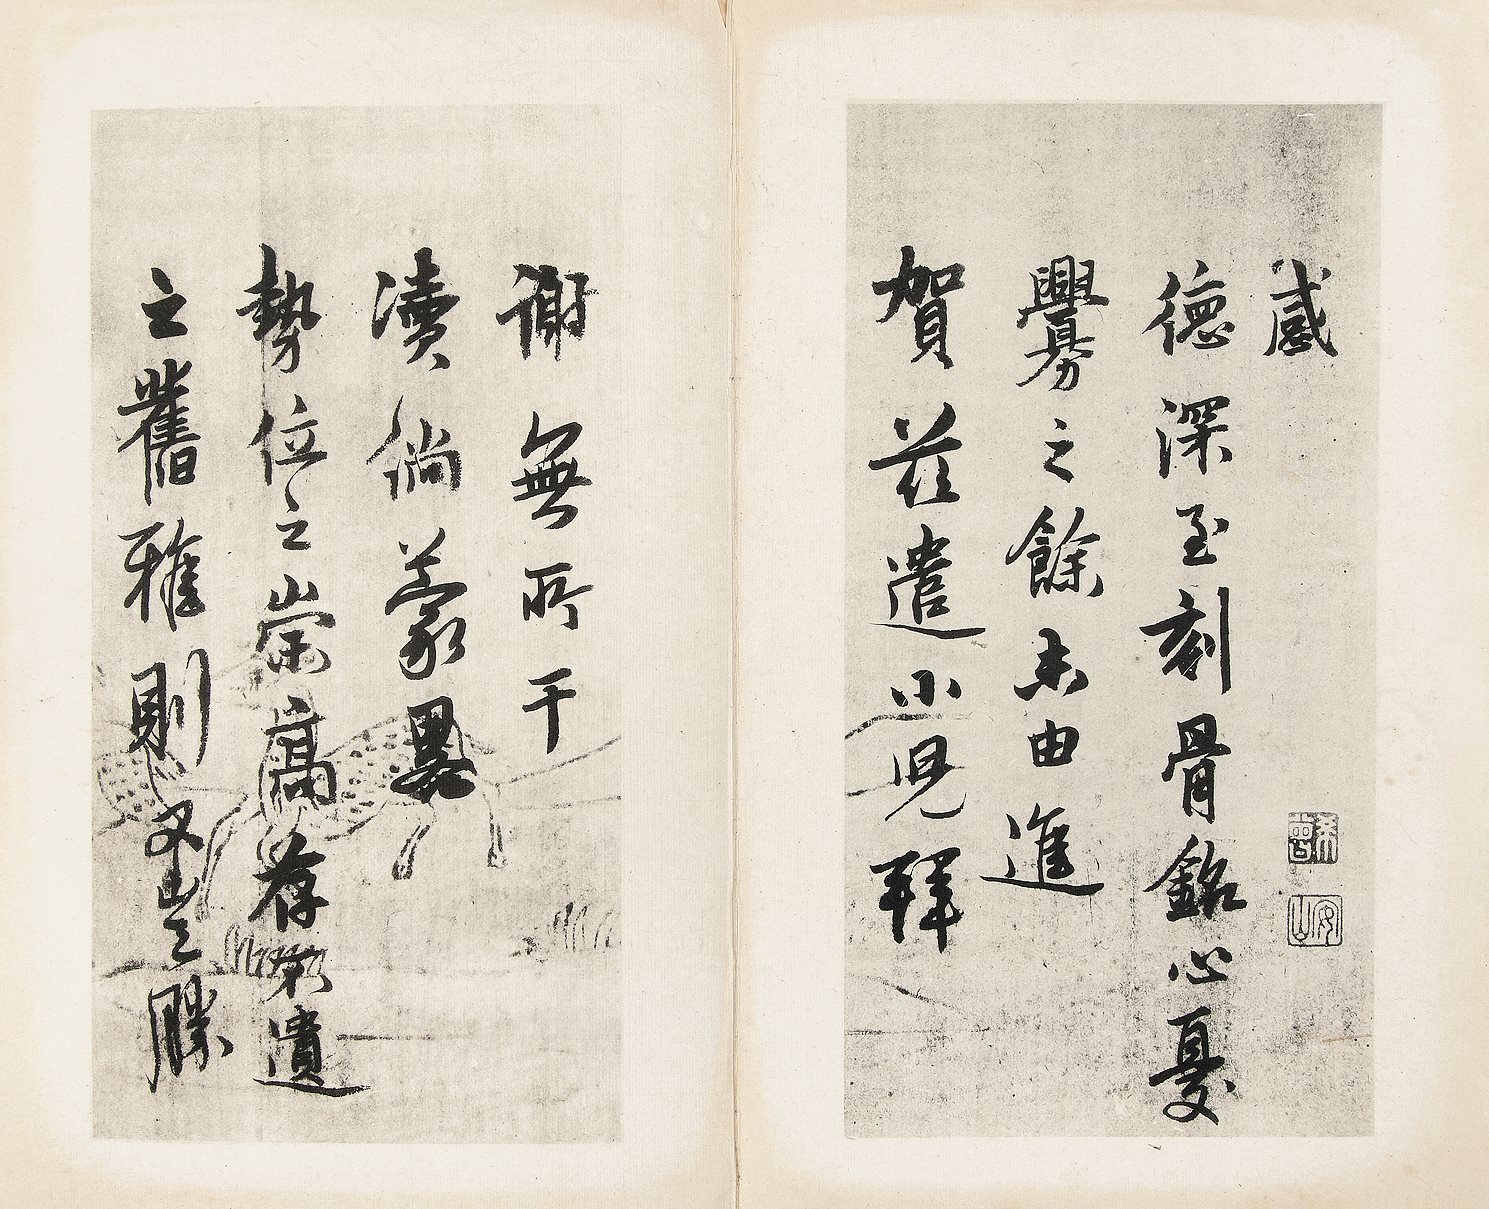 感
德深至刻骨銘心憂
釁之餘未由進
賀茲遣小兒拜
謝無所干
瀆倘蒙畧
勢位之崇高存不遺
之舊雅則又豈勝